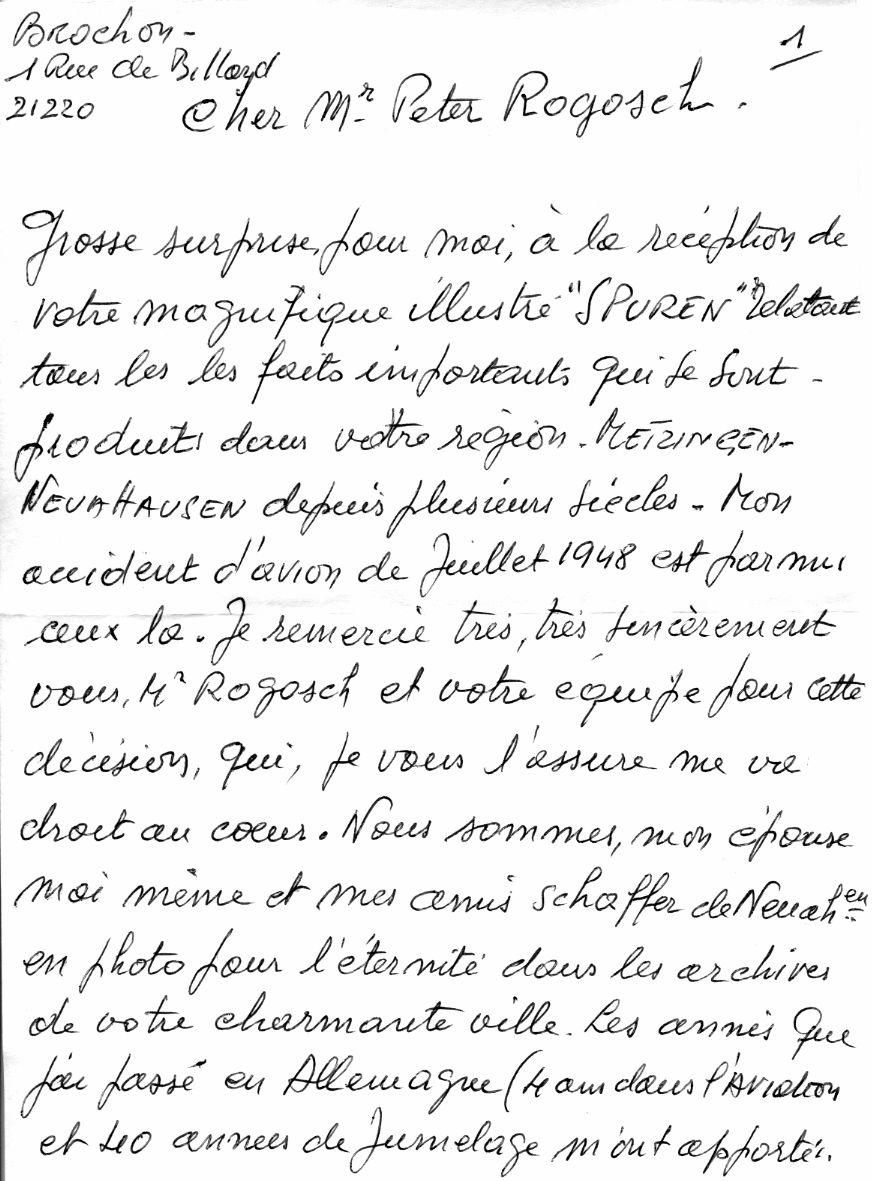 Brochon -
1
1 Rue de Billard
21220
Cher Mr Peter Rogosch.
Grosse surprise, pour moi, à la réception de
votre magnifique illustré "SPUREN" relatant
tous les les faits importants qui se sont -
produits dans votre région - METZINGEN-
NEUHAUSEN depuis plusieurs siècles - Mon
accident d'avion de Juillet 1948 est parmi
ceux la. Je remercie très, très sincèrement
vous, Mr Rogosch et votre équipe pour cette
décision, qui, je vous l'assure me va
droit au cœur. Nous sommes, mon épouse
moi même et mes amis Schaffer de Neuahen
en photo pour l'éternité dans les archives
de votre charmante ville. Les annés que
j'ai passé en Allemagne (4 ans dans l'Aviation
et 40 années de Jumelage m'ont apporté.